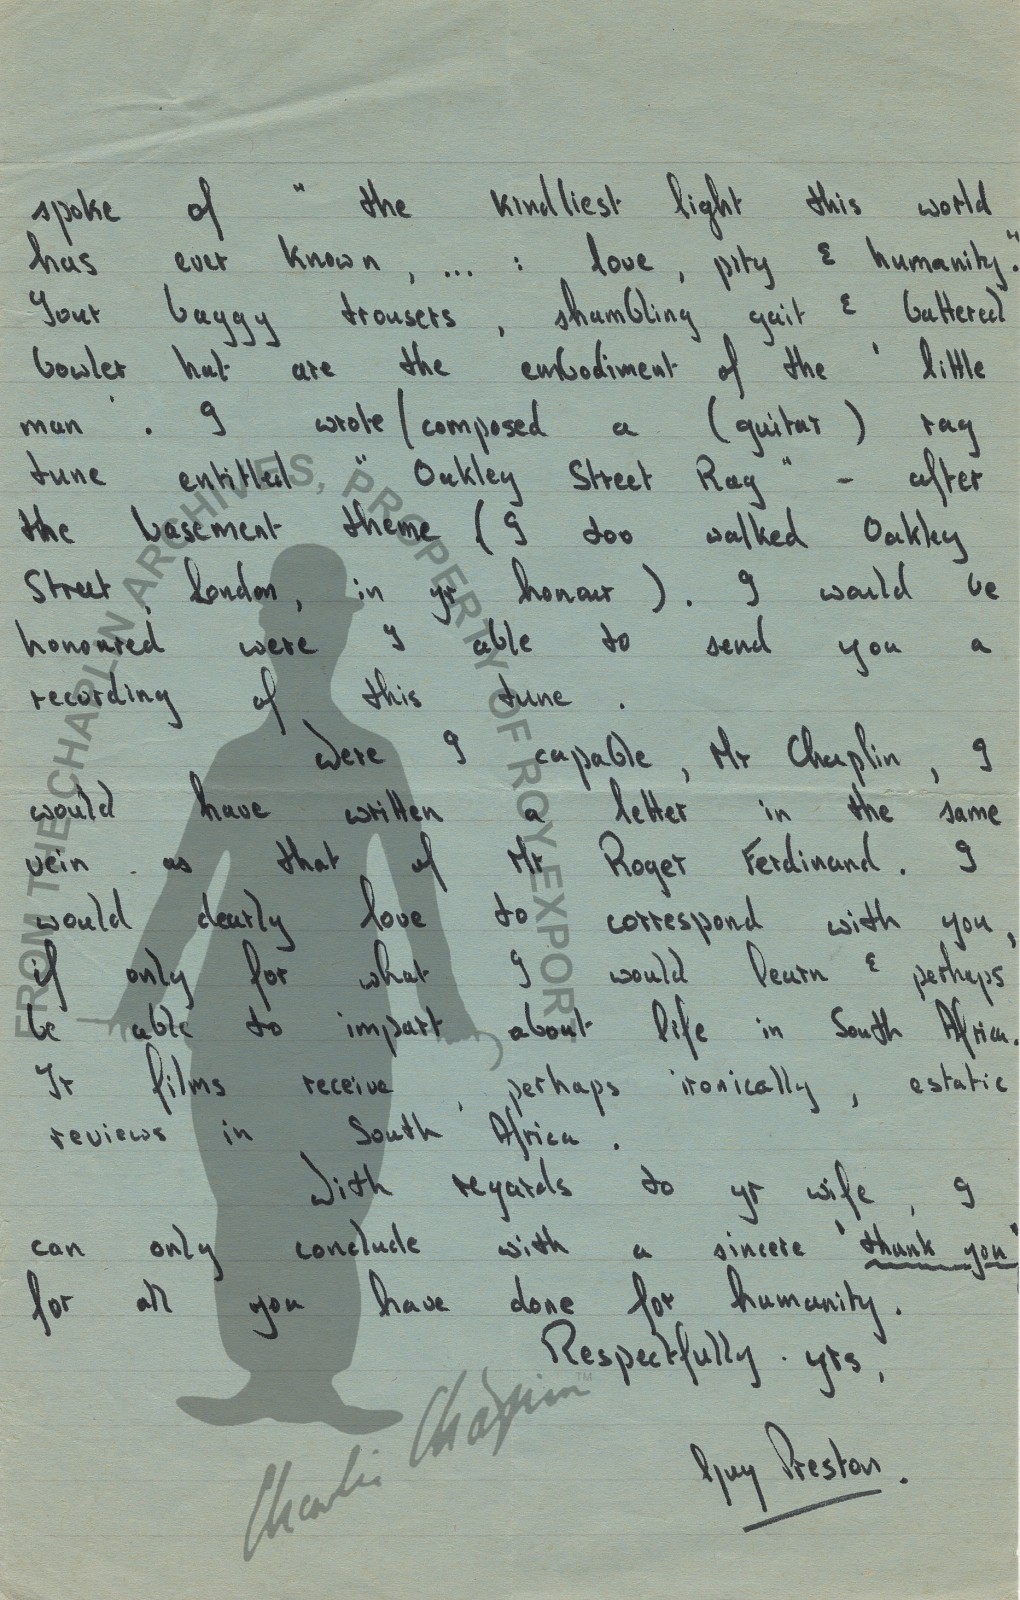 spoke of " the kindliest light this world
has ever known, ... : love, pity & humanity."
Your baggy trousers, shambling gait & battered
bowler hat are the embodiment of the ' little
man '. I wrote/composed a (guitar) rag
tune entitled " Oakley Street Rag " - after
the basement theme (I too walked Oakley
Street, London, in yr honour). I would be
honoured were I able to send you a
recording of this tune.
Were I capable, Mr Chaplin, I
would have written a letter in the same
vein as that of Mr Roger Ferdinand. I
would dearly love to correspond with you,
if only for what I would learn & perhaps
be able to impart about life in South Africa.
Yr films receive, perhaps ironically, estatic
reviews in South Africa.
With regards to yr wife, I
can only conclude with a sincere "thank you"
for all you have done for humanity.
Respectfully yrs,
Guy Preston.
FROM THE CHAPLIN ARCHIVES, PROPERTY OF ROY EXPORT
Charlie Chaplin TM